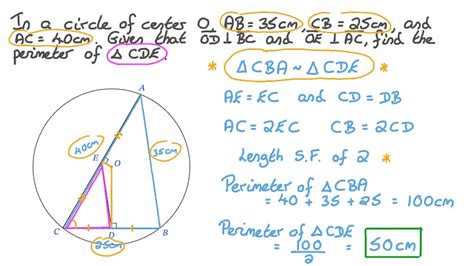 In a circle of center O, AB = 35cm, CB = 25cm, and
AC = 40cm. Given that OD ⊥ BC and OE ⊥ AC, find the
perimeter of △ CDE.
* △CBA ~ △CDE *
AE = EC and CD = DB
AC = 2EC CB = 2CD
Length S.F. of 2 *
Perimeter of △CBA
= 40 + 35 + 25 = 100cm
Perimeter of △CDE
= 100/2 = 50cm
A
40cm
35cm
E
O
C
D
B
25cm